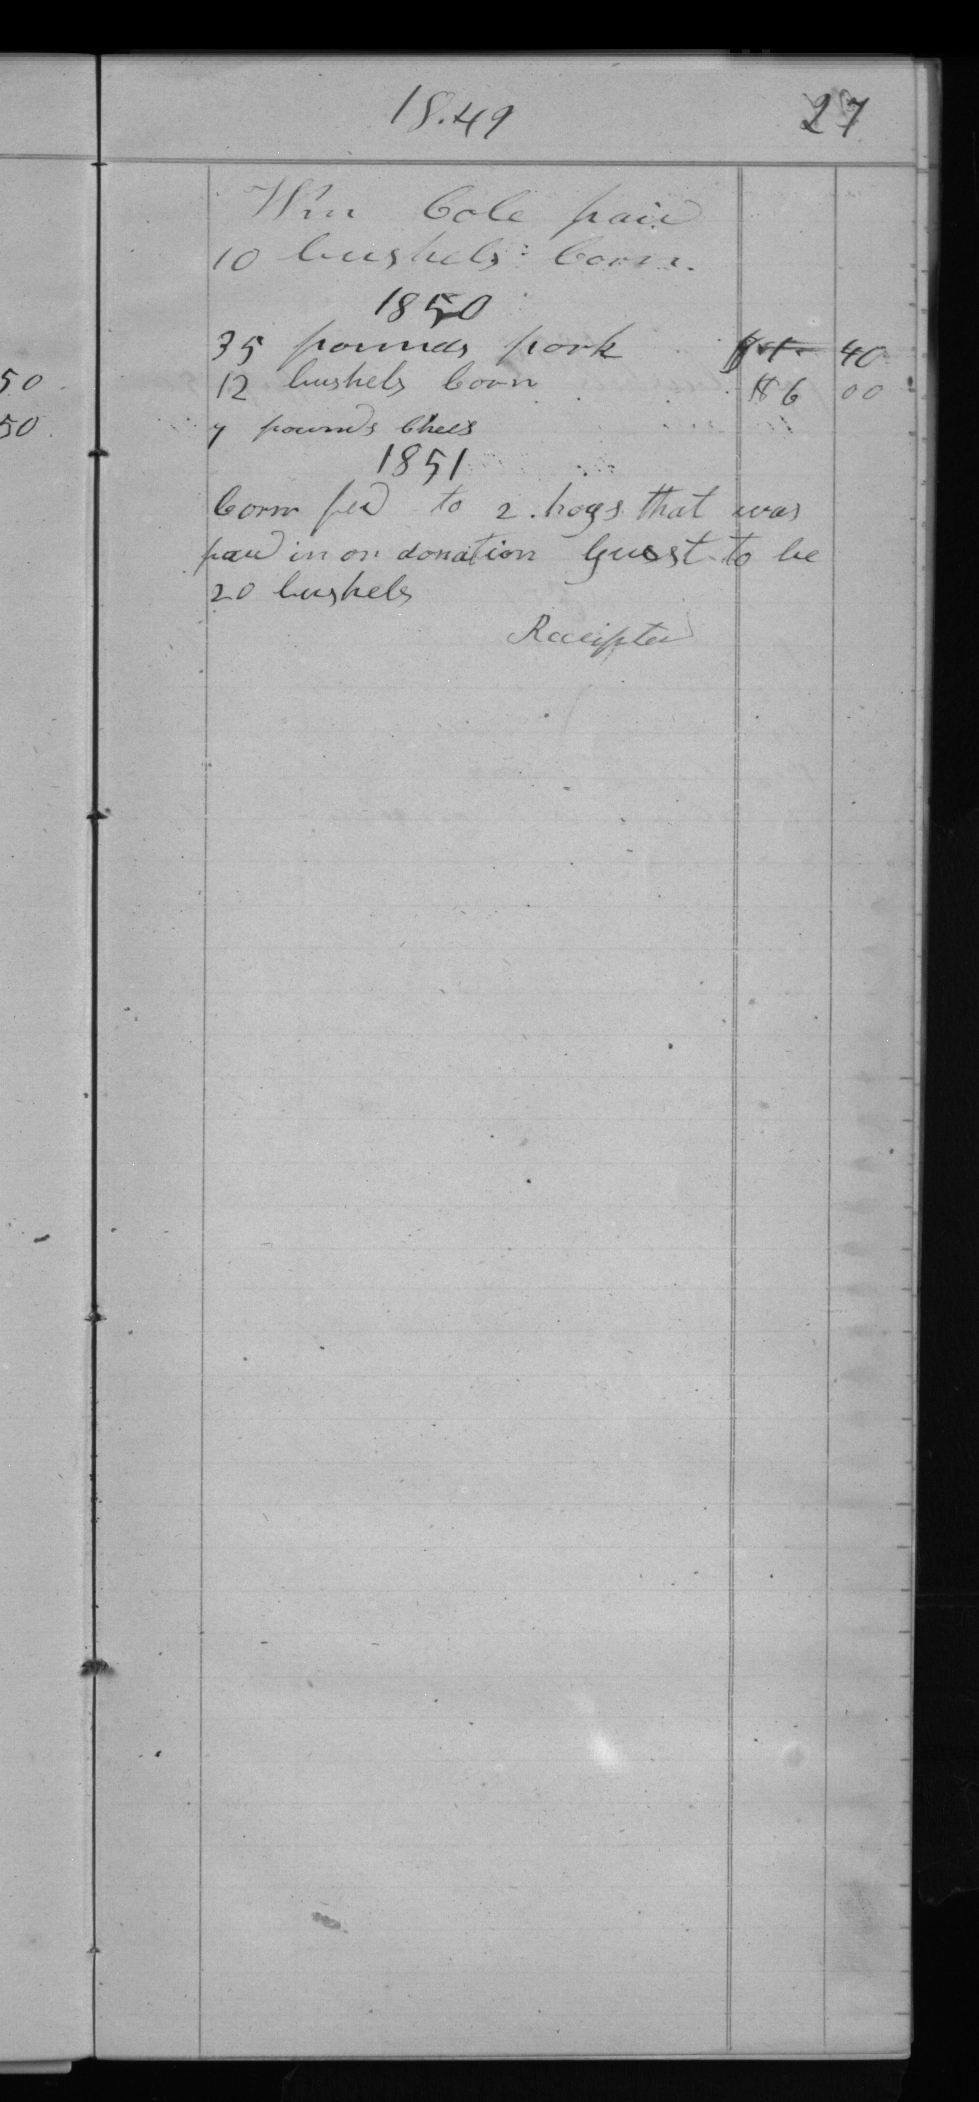 18.49 27
Wm Cole paid
10 bushels Corn.
1850
35 pounds pork $1. 40
50 12 bushels Corn $6 00
50 7 pounds Chees
1851
Corn fed to 2. hogs that was
paid in on donation Guest to be
20 bushels
Receipted